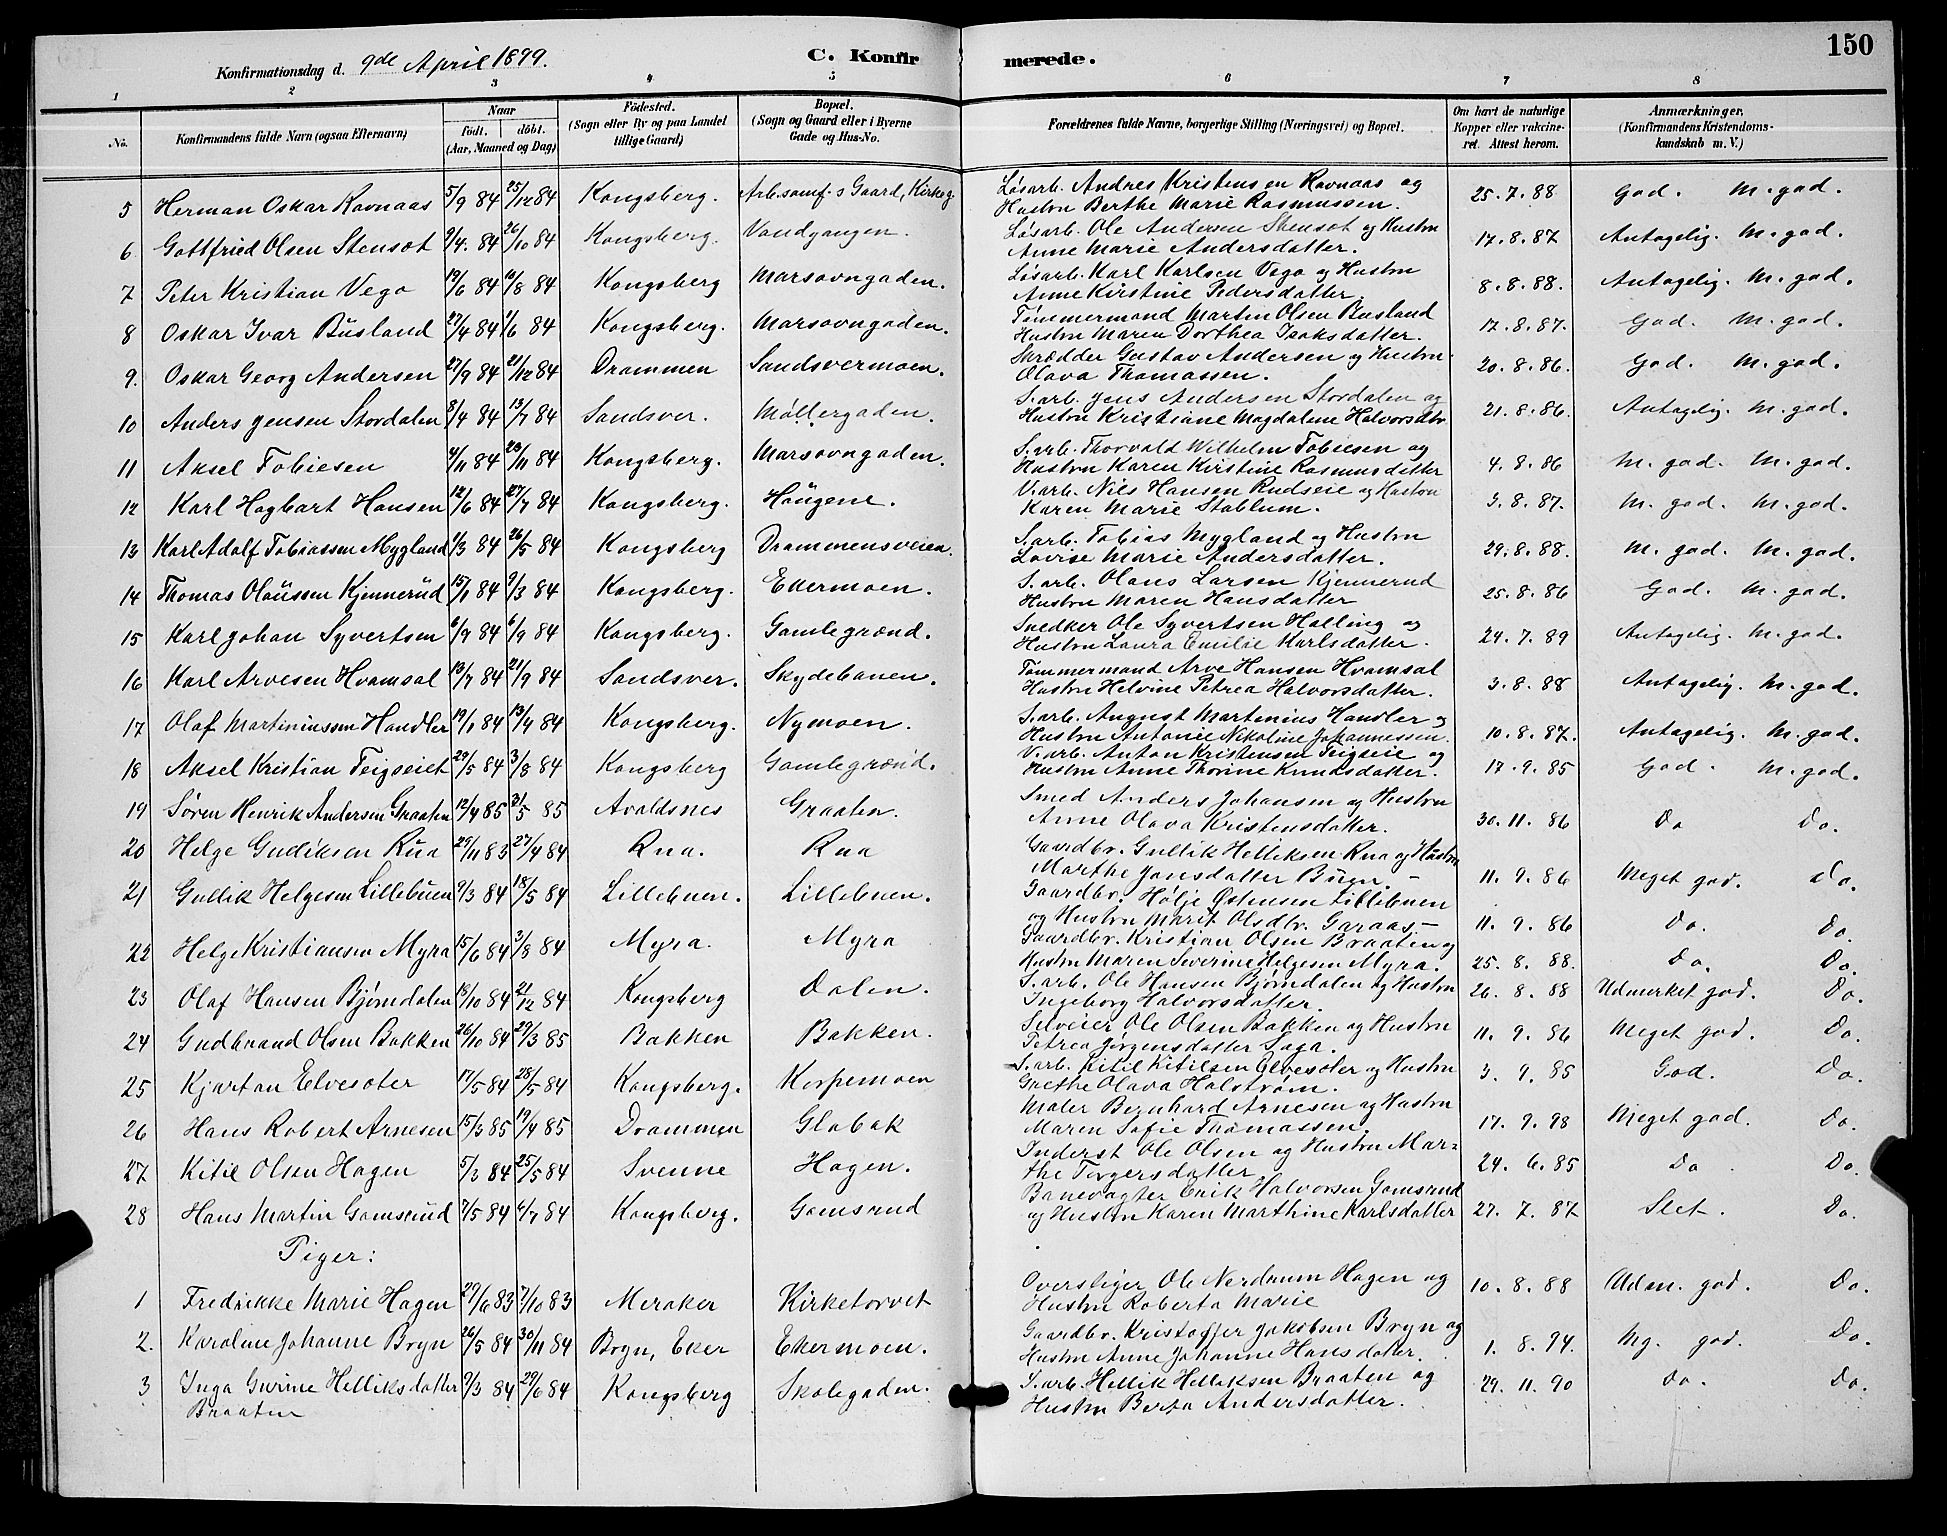 150
Konfirmationsdag d. 9de April 1899.
C. Konfirmerede.
1 2 3 4 5 6 7 8
No. | Konfirmandens fulde Navn (ogsaa Efternavn) | Naar født. døbt. (Aar, Maaned og Dag) | Födested. (Sogn eller By og paa Landet tillige Gaard) | Bopæl. (Sogn og Gaard eller i Byerne Gade og Hus-No. | Forældrenes fulde Navne, borgerlige Stilling (Næringsvei) og Bopæl. | Om havt de naturlige Kopper eller vakcineret. Attest herom. | Anmærkninger, (Konfirmandens Kristendomskundskab m. V.)
5 Herman Oskar Ravnaas 5/9 84 25/12 84 Kongsberg. Arb.samf.s Gaard, Kirkeg. Løsarb. Andres Kristensen Ravnaas og Hustru Berthe Marie Rasmussen. 25.7.88 God. M. god.
6 Gottfried Olsen Stensot 9/4. 84 26/10 84 Kongsberg. Vandgangen. Løsarb. Ole Andersen Stensot og Hustru Anne Marie Andersdatter. 17.8.87 Antagelig. M. god.
7 Peter Kristian Vego 19/6 84 10/8 84 Kongsberg Marsovngaden. Løsarb. Karl Karlsen Vego og Hustru Anne Kirstine Pedersdatter. 8.8.88. Antagelig. M. god.
8 Oskar Ivar Büsland 27/4 84 1/6 84 Kongsberg. Marsovngaden. Tømmermand Martin Olsen Busland Hustru Maren Dorthea Isaksdatter. 17.8.87. God. M. god.
9. Oskar Georg Andersen 27/9 84 21/12 84 Drammen Sandsvermoen. Skrædder Gustav Andersen og Hustru Olava Thomassen. 20.8.86. God. M. god.
10 Anders Jensen Stordalen 8/4 84 13/7 84 Sandsver. Møllergaden. S.arb. Jens Andersen Stordalen og Hustru Kristiane Magdalene Halvorsdtr 21.8.86. Antagelig. M. god.
11 Aksel Tobiesen 4/11 84 23/11 84 Kongsberg. Marsovngaden. S.arb. Thorvald Wilhelm Tobiesen og Hustru Karen Kirstine Rasmusdatter 4.8.86 M. god. M. god.
12 Karl Hagbart Hansen 12/6 84 27/7 84 Kongsberg. Haugene. V.arb. Nils Hansen Rudseie og Hustru Karen Marie Stablum. 3.8.87. M. god. M. god.
13 Karl Adolf Tobiassen Mygland 1/3 84 26/5 84 Kongsberg Drammensveien. S.arb. Tobias Mygland og Hustru Lovise Marie Andersdatter. 29.8.88. M. god. M. god.
14 Thomas Olaüssen Kjennerud 15/1 84 9/3 84 Kongsberg. Ekermoen. S.arb. Olaus Larsen Kjennerud Hustru Maren Hansdatter 25.8.86 God. M. god.
15 Karl Johan Syvertsen 6/7 84 6/9 84 Kongsberg. Gamlegrænd. Snedker Ole Syvertsen Helling og Hustru Laura Emilie Karlsdatter. 24.7.89 Antagelig. M. god.
16 Karl Arvesen Hvamsal 13/7 84 21/9 84 Sandsver. Skydebanen. Tømmermand Arve Hansen Hvamsal Hustru Helvine Petrea Halvorsdatter. 3.8.88 Antagelig. M. god.
17 Olaf Martiniussen Handler 19/1 84 13/4 84 Kongsberg. Nymoen. S.arb. August Martinius Handler og Hustru Antonie Nikoline Johannessen. 10.8.87. Antagelig. M. god.
18 Aksel Kristian Teigseiet 29/5 84 3/8 84 Kongsberg Gamlegrænd. V.arb. Anton Kristensen Teigseie og Hustru Anne Thorine Knudsdatter. 17.9.85 God. M. god.
19 Søren Henrik Andersen Graaten 12/4 85 31/5 85 Avaldsnes Graaten. Smed Anders Johansen og Hustru Anne Olava Kristensdatter. 30.11.86 Do Do.
20 Helge Gulliksen Rua 29/11 83 27/4 84 Rua. Rua Gaardbr. Gullik Helliksen Rua og Hustru Marthe Jonsdatter Buen. - 11.9.86 Meget god. Do.
21 Gullik Helgesen Lillebuen 9/3 84 18/5 84 Lillebuen. Lillebuen. Gaardbr. Hølje Østensen Lillebuen og Hustru Marit Olsdtr. Garaas. - 11.9.86 Do. Do.
22 Helge Kristiansen Myra 15/6 84 3/8 84 Myra. Myra Gaardbr. Kristian Olsen Braaten og Hustru Maren Severine Helgesen Myra. 25.8.88. Do. Do.
23 Olaf Hansen Bjørndalen 18/10 84 21/12 84 Kongsberg Dalen. S.arb. Ole Hansen Bjørndalen og Hustru Ingeborg Halvorsdatter. 26.8.88 Udmerket god. Do.
24 Gudbrand Olsen Bakken 26/10 84 29/3 85 Bakken Bakken. Selveier Ole Olsen Bakken og Hustru Petrea Jørgensdatter Saga. 11.9.86 Meget god. Do.
25 Kjartan Elvesæter 17/5 84 28/5 84 Kongsberg. Korpemoen S.arb. Kitil Kitilsen Elvesæter og Hustru Grethe Olava Halstrøm. 3.9.85 God. Do.
26 Hans Robert Arnesen 15/3 85 19/4 85 Drammen Glabak Maler Bernhard Arnesen og Hustru Maren Sofie Thomassen. 17.9.98 Meget god. Do.
27 Kitil Olsen Hagen 5/3 84 25/5 84 Svenne Hagen. Inderst Ole Olsen og Hustru Marthe Torgersdatter 24.6.85 Do Do.
28 Hans Martin Gamsrud 7/5 84 6/7 84 Kongsberg. Gomsrud Banevogter Erik Halvorsen Gomsrud og Hustru Karen Marthine Karlsdatter 27.7.87 Slet. Do.
Piger:
1 Fredrikke Marie Hagen 29/6 83 7/10 83 Meraker Kirketorvet Overstiger Ole Nordaum Hagen og Hustru Roberta Marie 10.8.88 Udm. god. Do.
2. Karoline Johanne Bryn 26/5 84 30/11 84 Bryn, Eker Ekermoen. Gaardbr. Kristoffer Jakobsen Bryn og Hustru Anne Johanne Hansdatter. 1.8.94. Mg. god. Do.
3 Inga Gurine Helliksdatter Braaten 9/3 84 29/6 84 Kongsberg Skolegaden. S.arb. Hellik Helleksen Braaten og Hustru Berta Andersdatter. 29.11.90 Do. Do.